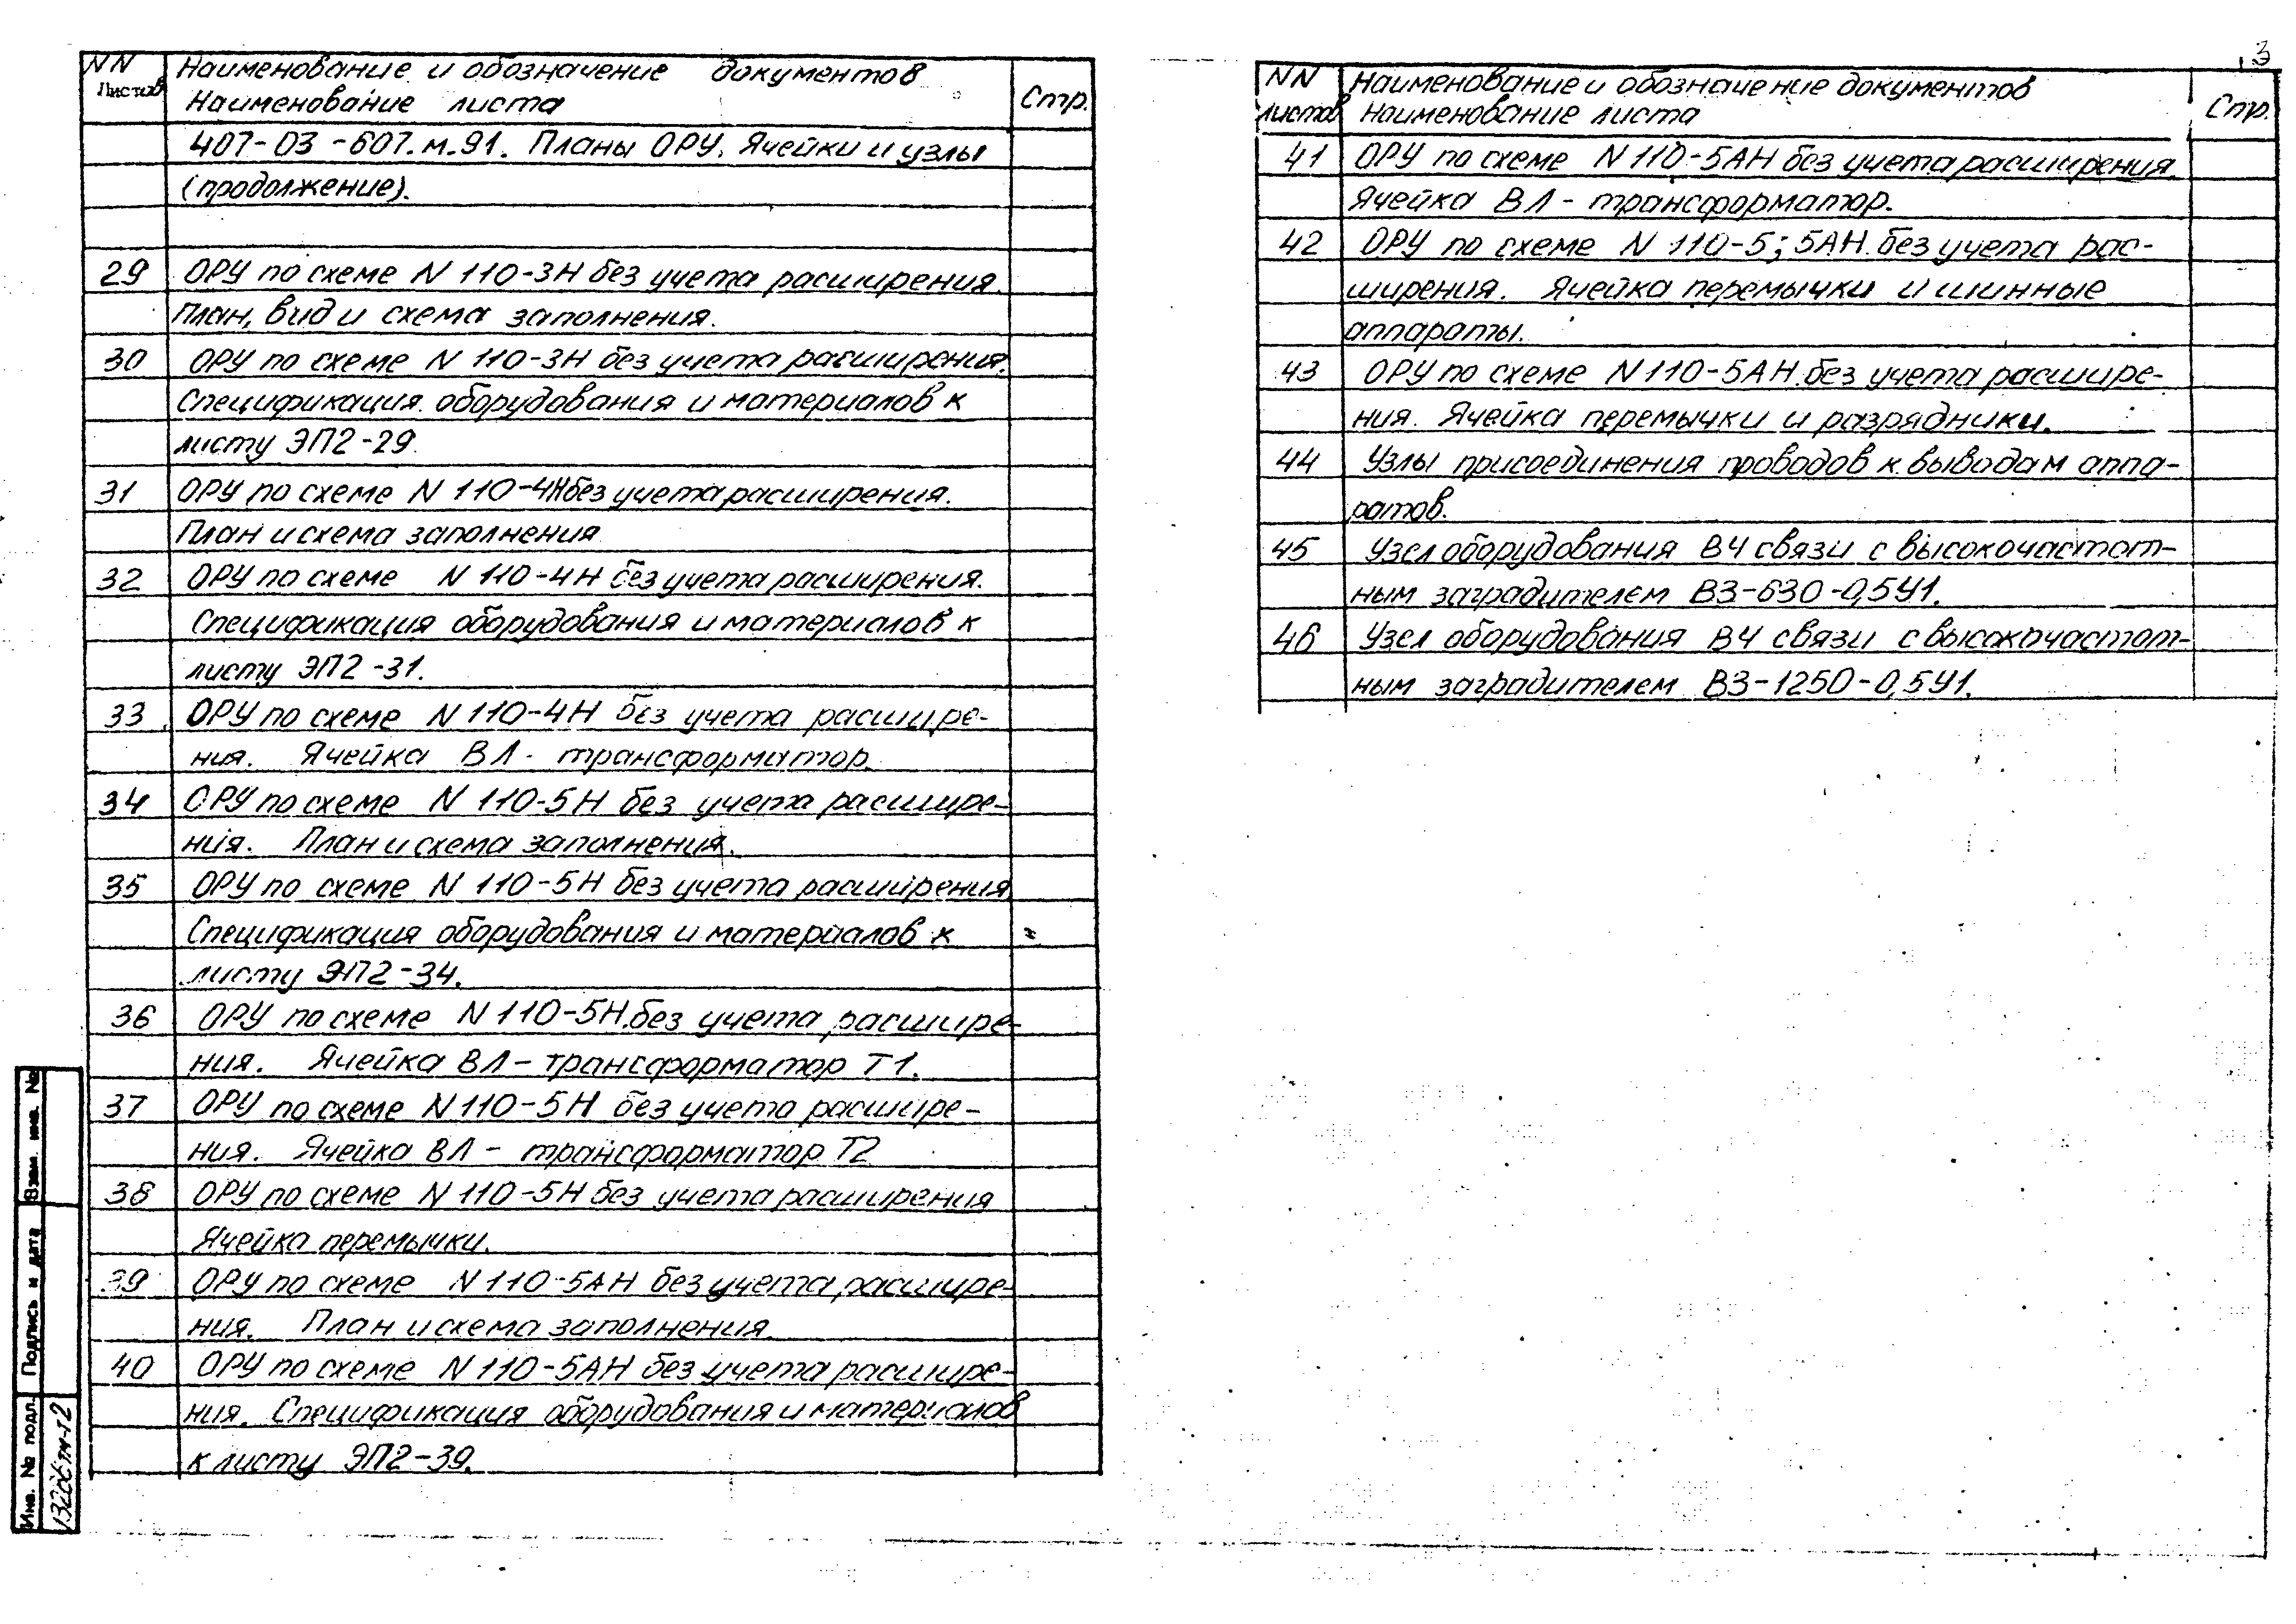 NN Наименование и обозначение документов
Листов Наименование листа Стр.
407-03-607.м.91. Планы ОРУ. Ячейки и узлы
(продолжение).
29 ОРУ по схеме N 110-3Н без учета расширения.
План, вид и схема заполнения.
30 ОРУ по схеме N 110-3Н без учета расширения.
Спецификация оборудования и материалов к
листу ЭП2-29.
31 ОРУ по схеме N 110-4Н без учета расширения.
План и схема заполнения
32 ОРУ по схеме N 110-4Н без учета расширения.
Спецификация оборудования и материалов к
листу ЭП2-31.
33 ОРУ по схеме N 110-4Н без учета расшире-
ния. Ячейка ВЛ - трансформатор.
34 ОРУ по схеме N 110-5Н без учета расшире-
ния. План и схема заполнения.
35 ОРУ по схеме N 110-5Н без учета расширения.
Спецификация оборудования и материалов к
листу ЭП2-34.
36 ОРУ по схеме N 110-5Н без учета расшире-
ния. Ячейка ВЛ - трансформатор Т1.
37 ОРУ по схеме N 110-5Н без учета расшире-
ния. Ячейка ВЛ - трансформатор Т2
38 ОРУ по схеме N 110-5Н без учета расширения
Ячейка перемычки.
39 ОРУ по схеме N 110-5АН без учета расшире-
ния. План и схема заполнения
40 ОРУ по схеме N 110-5АН без учета расшире-
ния. Спецификация оборудования и материалов
к листу ЭП2-39.
3
NN Наименование и обозначение документов
листов Наименование листа Стр.
41 ОРУ по схеме N 110-5АН без учета расширения.
Ячейка ВЛ - трансформатор.
42 ОРУ по схеме N 110-5; 5АН без учета рас-
ширения. Ячейка перемычки и шинные
аппараты.
43 ОРУ по схеме N 110-5АН без учета расшире-
ния. Ячейка перемычки и разрядники.
44 Узлы присоединения проводов к выводам аппа-
ратов.
45 Узел оборудования ВЧ связи с высокочастот-
ным заградителем ВЗ-630-0,5У1.
46 Узел оборудования ВЧ связи с высокочастот-
ным заградителем ВЗ-1250-0,5У1.
Взам. инв. №
Подпись и дата
Инв. № подл.